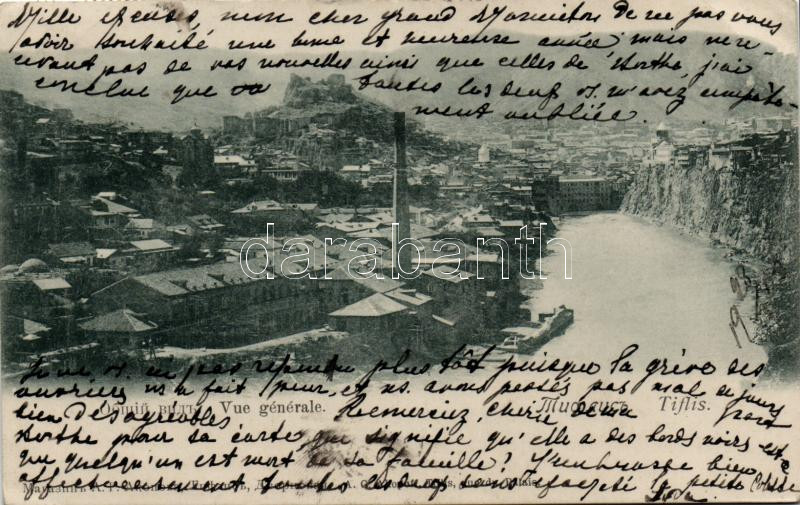 Mille excuses, mon cher grand Monsieur de ne pas vous
avoir souhaité une bonne et heureuse année, mais ne re-
cevant pas de vos nouvelles ainsi que celles de Marthe, j'ai
conclue que toutes les deux vs. m'avez complète-
ment oubliée.
darabanth
Je ne vs. ai pas répondu plus tôt puisque la grève des
ouvriers ns a fait peur, et ns. avons passés pas mal de jours
bien desagréables. Remerciez, cherie de ma part
Общій видъ. Vue générale. Тифлисъ. Tiflis.
Marthe pour sa carte que signifie qu'elle a des bords noirs est ce
que quelqu'un est mort de sa famille? J'embrasse bien
affectueusement toutes les deux la petite